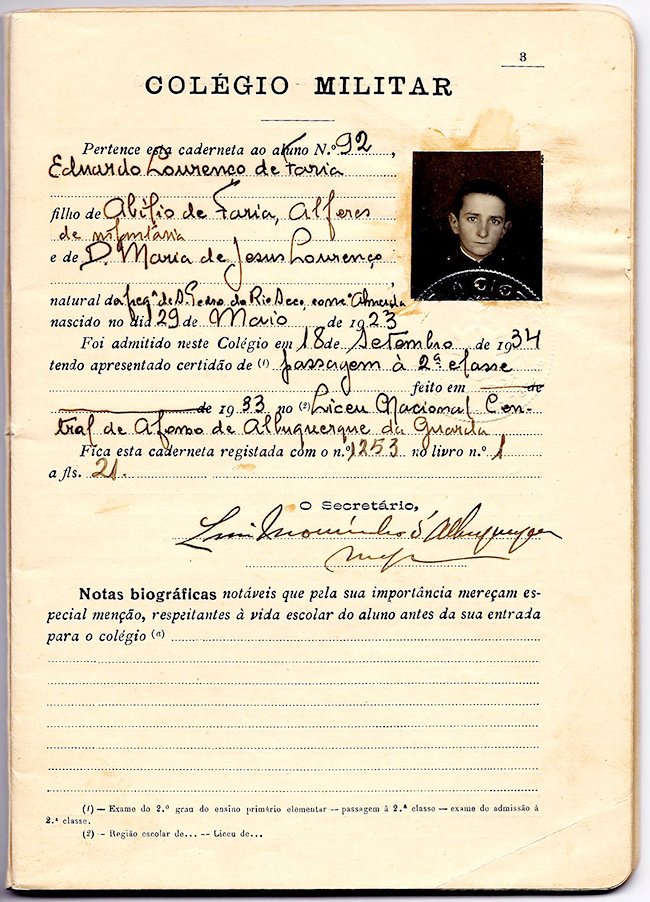 3
COLÉGIO MILITAR
Pertence esta caderneta ao aluno N.º 92,
Eduardo Lourenço de Faria
filho de Abílio de Faria, Alferes
de infantaria
e de D. Maria de Jesus Lourenço,
natural da freg.ª de S. Pedro do Rio Seco, conc.º Almeida
nascido no dia 29 de Maio de 1923
Foi admitido neste Colégio em 18 de Setembro de 1934
tendo apresentado certidão de (1) passagem à 2ª classe
feito em de
de 1933 no (2) Liceu Nacional Cen-
tral de Afonso de Albuquerque da Guarda
Fica esta caderneta registada com o n.º 1253 no livro n.º 1
a fls. 21.
O Secretário,
Luis Mousinho d'Albuquerque
Notas biográficas notáveis que pela sua importância mereçam es-
pecial menção, respeitantes à vida escolar do aluno antes da sua entrada
para o colégio (a)
(1) — Exame do 2.º grau do ensino primário elementar — passagem à 2.ª classe — exame de admissão à
2.ª classe.
(2) — Região escolar de... — Liceu de...